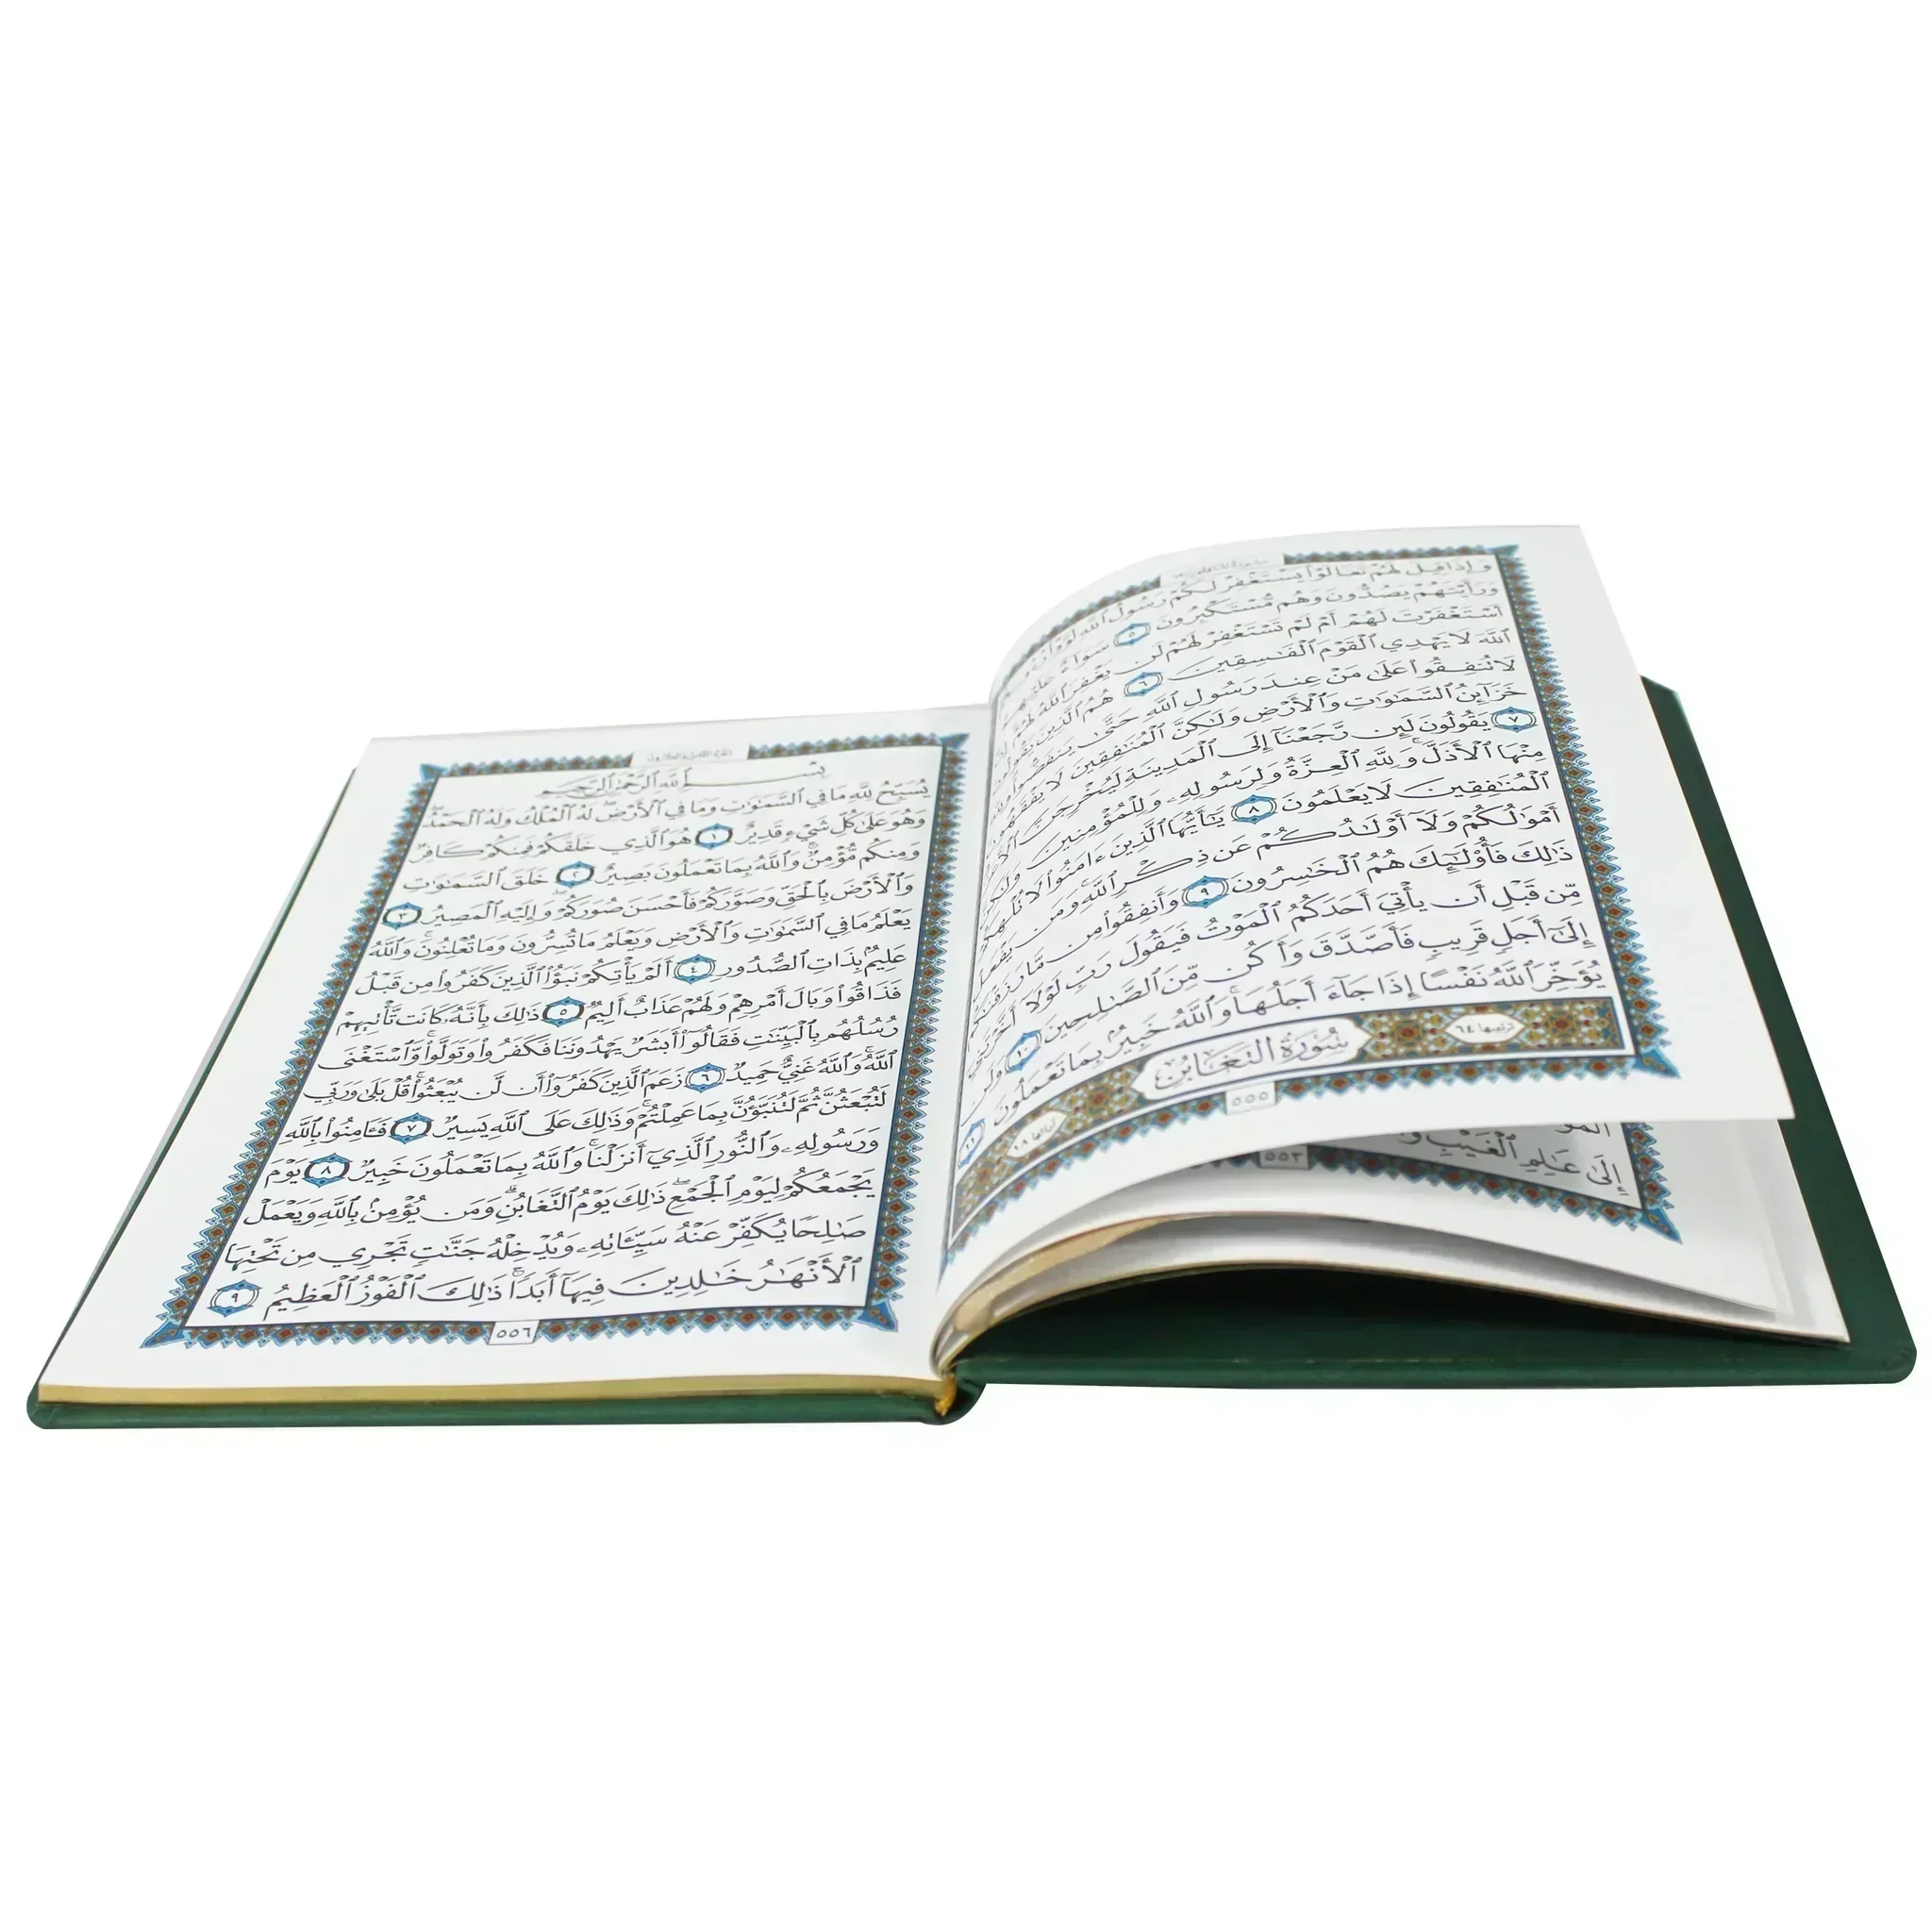 وَإِذَا قِيلَ لَهُمْ تَعَالَوْا۟ يَسْتَغْفِرْ لَكُمْ رَسُولُ ٱللَّهِ
وَرَأَيْتَهُمْ يَصُدُّونَ وَهُم مُّسْتَكْبِرُونَ ٥ سَوَآءٌ عَلَيْهِمْ
أَسْتَغْفَرْتَ لَهُمْ أَمْ لَمْ تَسْتَغْفِرْ لَهُمْ لَن يَغْفِرَ ٱللَّهُ لَهُمْ
ٱللَّهَ لَا يَهْدِي ٱلْقَوْمَ ٱلْفَٰسِقِينَ ٦ هُمُ ٱلَّذِينَ يَقُولُونَ
لَا تُنفِقُوا۟ عَلَىٰ مَنْ عِندَ رَسُولِ ٱللَّهِ حَتَّىٰ يَنفَضُّوا۟
خَزَآئِنُ ٱلسَّمَٰوَٰتِ وَٱلْأَرْضِ وَلَٰكِنَّ ٱلْمُنَٰفِقِينَ لَا يَفْقَهُونَ
٧ يَقُولُونَ لَئِن رَّجَعْنَآ إِلَى ٱلْمَدِينَةِ لَيُخْرِجَنَّ
مِنْهَا ٱلْأَذَلَّ ۚ وَلِلَّهِ ٱلْعِزَّةُ وَلِرَسُولِهِۦ وَلِلْمُؤْمِنِينَ وَلَٰكِنَّ
ٱلْمُنَٰفِقِينَ لَا يَعْلَمُونَ ٨ يَٰٓأَيُّهَا ٱلَّذِينَ ءَامَنُوا۟ لَا تُلْهِكُمْ
أَمْوَٰلُكُمْ وَلَآ أَوْلَٰدُكُمْ عَن ذِكْرِ ٱللَّهِ ۚ وَمَن يَفْعَلْ
ذَٰلِكَ فَأُو۟لَٰٓئِكَ هُمُ ٱلْخَٰسِرُونَ ٩ وَأَنفِقُوا۟ مِن مَّا رَزَقْنَٰكُم
مِّن قَبْلِ أَن يَأْتِيَ أَحَدَكُمُ ٱلْمَوْتُ فَيَقُولَ رَبِّ لَوْلَآ أَخَّرْتَنِيٓ
إِلَىٰٓ أَجَلٍ قَرِيبٍ فَأَصَّدَّقَ وَأَكُن مِّنَ ٱلصَّٰلِحِينَ ١٠ وَلَن
يُؤَخِّرَ ٱللَّهُ نَفْسًا إِذَا جَآءَ أَجَلُهَا ۚ وَٱللَّهُ خَبِيرٌۢ بِمَا تَعْمَلُونَ ١١
ترتيبها ٦٤ سُورَةُ التَّغَابُنِ آياتها ١٨
٥٥٥
إِلَىٰ عَٰلِمِ ٱلْغَيْبِ
٥٥٣
بِسْمِ ٱللَّهِ ٱلرَّحْمَٰنِ ٱلرَّحِيمِ
يُسَبِّحُ لِلَّهِ مَا فِي ٱلسَّمَٰوَٰتِ وَمَا فِي ٱلْأَرْضِ ۖ لَهُ ٱلْمُلْكُ وَلَهُ ٱلْحَمْدُ ۖ
وَهُوَ عَلَىٰ كُلِّ شَيْءٍ قَدِيرٌ ١ هُوَ ٱلَّذِي خَلَقَكُمْ فَمِنكُمْ كَافِرٌ
وَمِنكُم مُّؤْمِنٌ ۚ وَٱللَّهُ بِمَا تَعْمَلُونَ بَصِيرٌ ٢ خَلَقَ ٱلسَّمَٰوَٰتِ
وَٱلْأَرْضَ بِٱلْحَقِّ وَصَوَّرَكُمْ فَأَحْسَنَ صُوَرَكُمْ ۖ وَإِلَيْهِ ٱلْمَصِيرُ ٣
يَعْلَمُ مَا فِي ٱلسَّمَٰوَٰتِ وَٱلْأَرْضِ وَيَعْلَمُ مَا تُسِرُّونَ وَمَا تُعْلِنُونَ ۚ وَٱللَّهُ
عَلِيمٌۢ بِذَاتِ ٱلصُّدُورِ ٤ أَلَمْ يَأْتِكُمْ نَبَؤُا۟ ٱلَّذِينَ كَفَرُوا۟ مِن قَبْلُ
فَذَاقُوا۟ وَبَالَ أَمْرِهِمْ وَلَهُمْ عَذَابٌ أَلِيمٌ ٥ ذَٰلِكَ بِأَنَّهُۥ كَانَت تَّأْتِيهِمْ
رُسُلُهُم بِٱلْبَيِّنَٰتِ فَقَالُوٓا۟ أَبَشَرٌ يَهْدُونَنَا فَكَفَرُوا۟ وَتَوَلَّوا۟ ۚ وَّٱسْتَغْنَى
ٱللَّهُ ۚ وَٱللَّهُ غَنِيٌّ حَمِيدٌ ٦ زَعَمَ ٱلَّذِينَ كَفَرُوٓا۟ أَن لَّن يُبْعَثُوا۟ ۚ قُلْ بَلَىٰ وَرَبِّي
لَتُبْعَثُنَّ ثُمَّ لَتُنَبَّؤُنَّ بِمَا عَمِلْتُمْ ۚ وَذَٰلِكَ عَلَى ٱللَّهِ يَسِيرٌ ٧ فَـَٔامِنُوا۟ بِٱللَّهِ
وَرَسُولِهِۦ وَٱلنُّورِ ٱلَّذِيٓ أَنزَلْنَا ۚ وَٱللَّهُ بِمَا تَعْمَلُونَ خَبِيرٌ ٨ يَوْمَ
يَجْمَعُكُمْ لِيَوْمِ ٱلْجَمْعِ ۖ ذَٰلِكَ يَوْمُ ٱلتَّغَابُنِ ۗ وَمَن يُؤْمِنۢ بِٱللَّهِ وَيَعْمَلْ
صَٰلِحًا يُكَفِّرْ عَنْهُ سَيِّـَٔاتِهِۦ وَيُدْخِلْهُ جَنَّٰتٍ تَجْرِي مِن تَحْتِهَا
ٱلْأَنْهَٰرُ خَٰلِدِينَ فِيهَآ أَبَدًا ۚ ذَٰلِكَ ٱلْفَوْزُ ٱلْعَظِيمُ ٩
٥٥٦